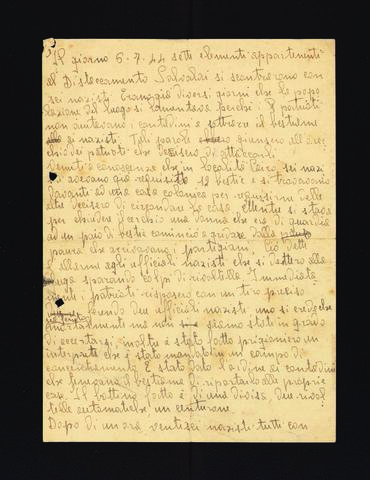 Il giorno 6-7-44 sette elementi appartenenti
al Distaccamento Salvalai si scontrarono con
sei nazisti. Erano già diversi giorni che la popo
lazione del luogo si lamentava perchè i patriotti
non aiutavano i contadini a sottrarre il bestiame
ai nazisti. Tali parole giunsero all'orec
chio dei patrioti che decisero di attaccarli.
Venuti a conoscenza che in località sei nazi
sti avevano già requisito 12 bestie e si trovavano
davanti ad una casa colonica per requisirne delle
altre decisero di circondare la casa. Mentre si stava
per chiudere il cerchio una donna che era di guardia
ad un paio di bestie cominciò a gridare dalla
paura che arrivavano i partigiani. Ciò dette
l'allarme agli ufficiali nazisti che si dettero alla
fuga sparando colpi di rivoltella. Immediata
mente i patrioti risposero con un tiro preciso
due ufficiali nazisti uno si crede che
mortalmente ma non siamo stati in grado
di accertarsi, inoltre è stato fatto prigioniero un
interprete che è stato mandato in campo di
concentramento. È stato dato l'ordine ai contadini
che fungono il bestiame di riportarlo alle proprie
case. Il bottino fatto è di una divisa, due rivol
telle automatiche un centurone.
Dopo di un'ora ventisei nazisti tutti con